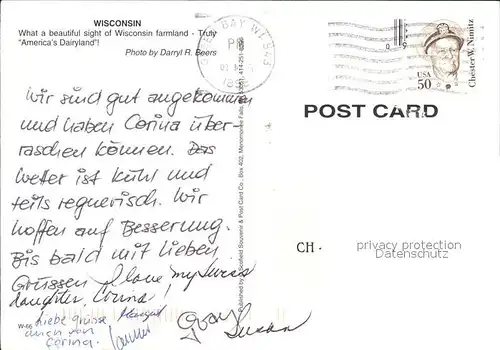 WISCONSIN
What a beautiful sight of Wisconsin farmland - Truly
"America's Dairyland"!
Photo by Darryl R. Beers
GREEN BAY WI 543
PM
USA
50
Chester W. Nimitz
POST CARD
Wir sind gut angekommen
und haben Corina über-
raschen können. Das
Wetter ist kühl und
teils regnerisch. Wir
hoffen auf Besserung.
Bis bald mit lieben
Grüssen I love my Swiss
daughter, Corina!
Liebe Grüsse
auch von
Corina.
Gary
Susan
CH -
privacy protection
Datenschutz
Published by Scofield Souvenir & Post Card Co., Box 402, Menomonee Falls
W-66